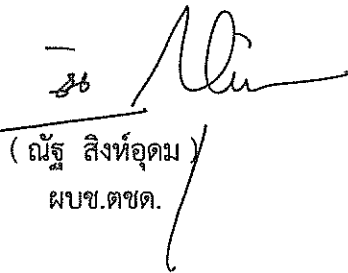 ( ณัฐ สิงห์อุดม )
ผบช.ตชด.